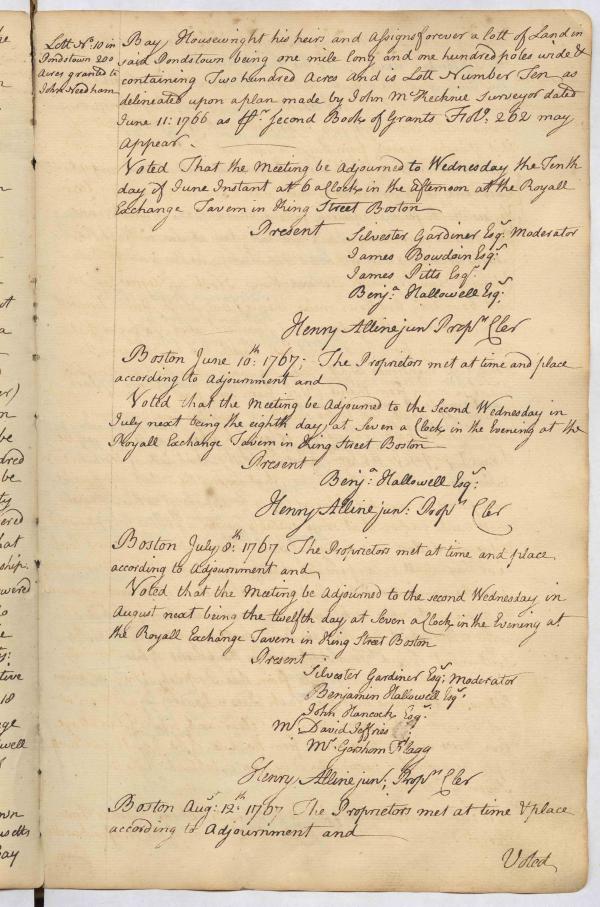 Lott No. 10 in
Pondstown 200
Acres granted to
John Needham
Bay, Housewright his heirs and Assigns forever a lott of Land in
said Pondstown being one mile long and one hundred poles wide &
containing Two hundred Acres and is Lott Number Ten as
delineated upon a plan made by John McKecknie Surveyor dated
June 11: 1766 as pr. second Book of Grants Folo. 262 may
Appear.
Voted That the Meeting be Adjourned to Wednesday the Tenth
day of June Instant at 6 a Clock in the Afternoon at the Royall
Exchange Tavern in King Street Boston
Present
Silvester Gardiner Esqr. Moderator
James Bowdoin Esqr.
James Pitts Esqr.
Benja. Hallowell Esqr.
Henry Alline junr. Proprs. Cler
Boston June 10th. 1767; The Proprietors met at time and place
according to Adjournment and
Voted that the Meeting be Adjourned to the Second Wednesday in
July next being the eighth day, at Seven a Clock in the Evening at the
Royall Exchange Tavern in King Street Boston
Present
Benja. Hallowell Esqr.
Henry Alline junr. Proprs. Cler
Boston July 8th. 1767 The Proprietors met at time and place,
according to Adjournment and
Voted that the Meeting be Adjourned to the second Wednesday in
August next being the twelfth day, at Seven a Clock in the Evening at
the Royall Exchange Tavern in King Street Boston
Present
Silvester Gardiner Esqr. Moderator
Benjamin Hallowell Esqr.
John Hancock Esqr.
Mr. David Jeffries
Mr. Gorshom Flagg
Henry Alline junr. Proprs. Cler
Boston Augt. 12th. 1767 The Proprietors met at time & place
according to Adjournment and
Voted